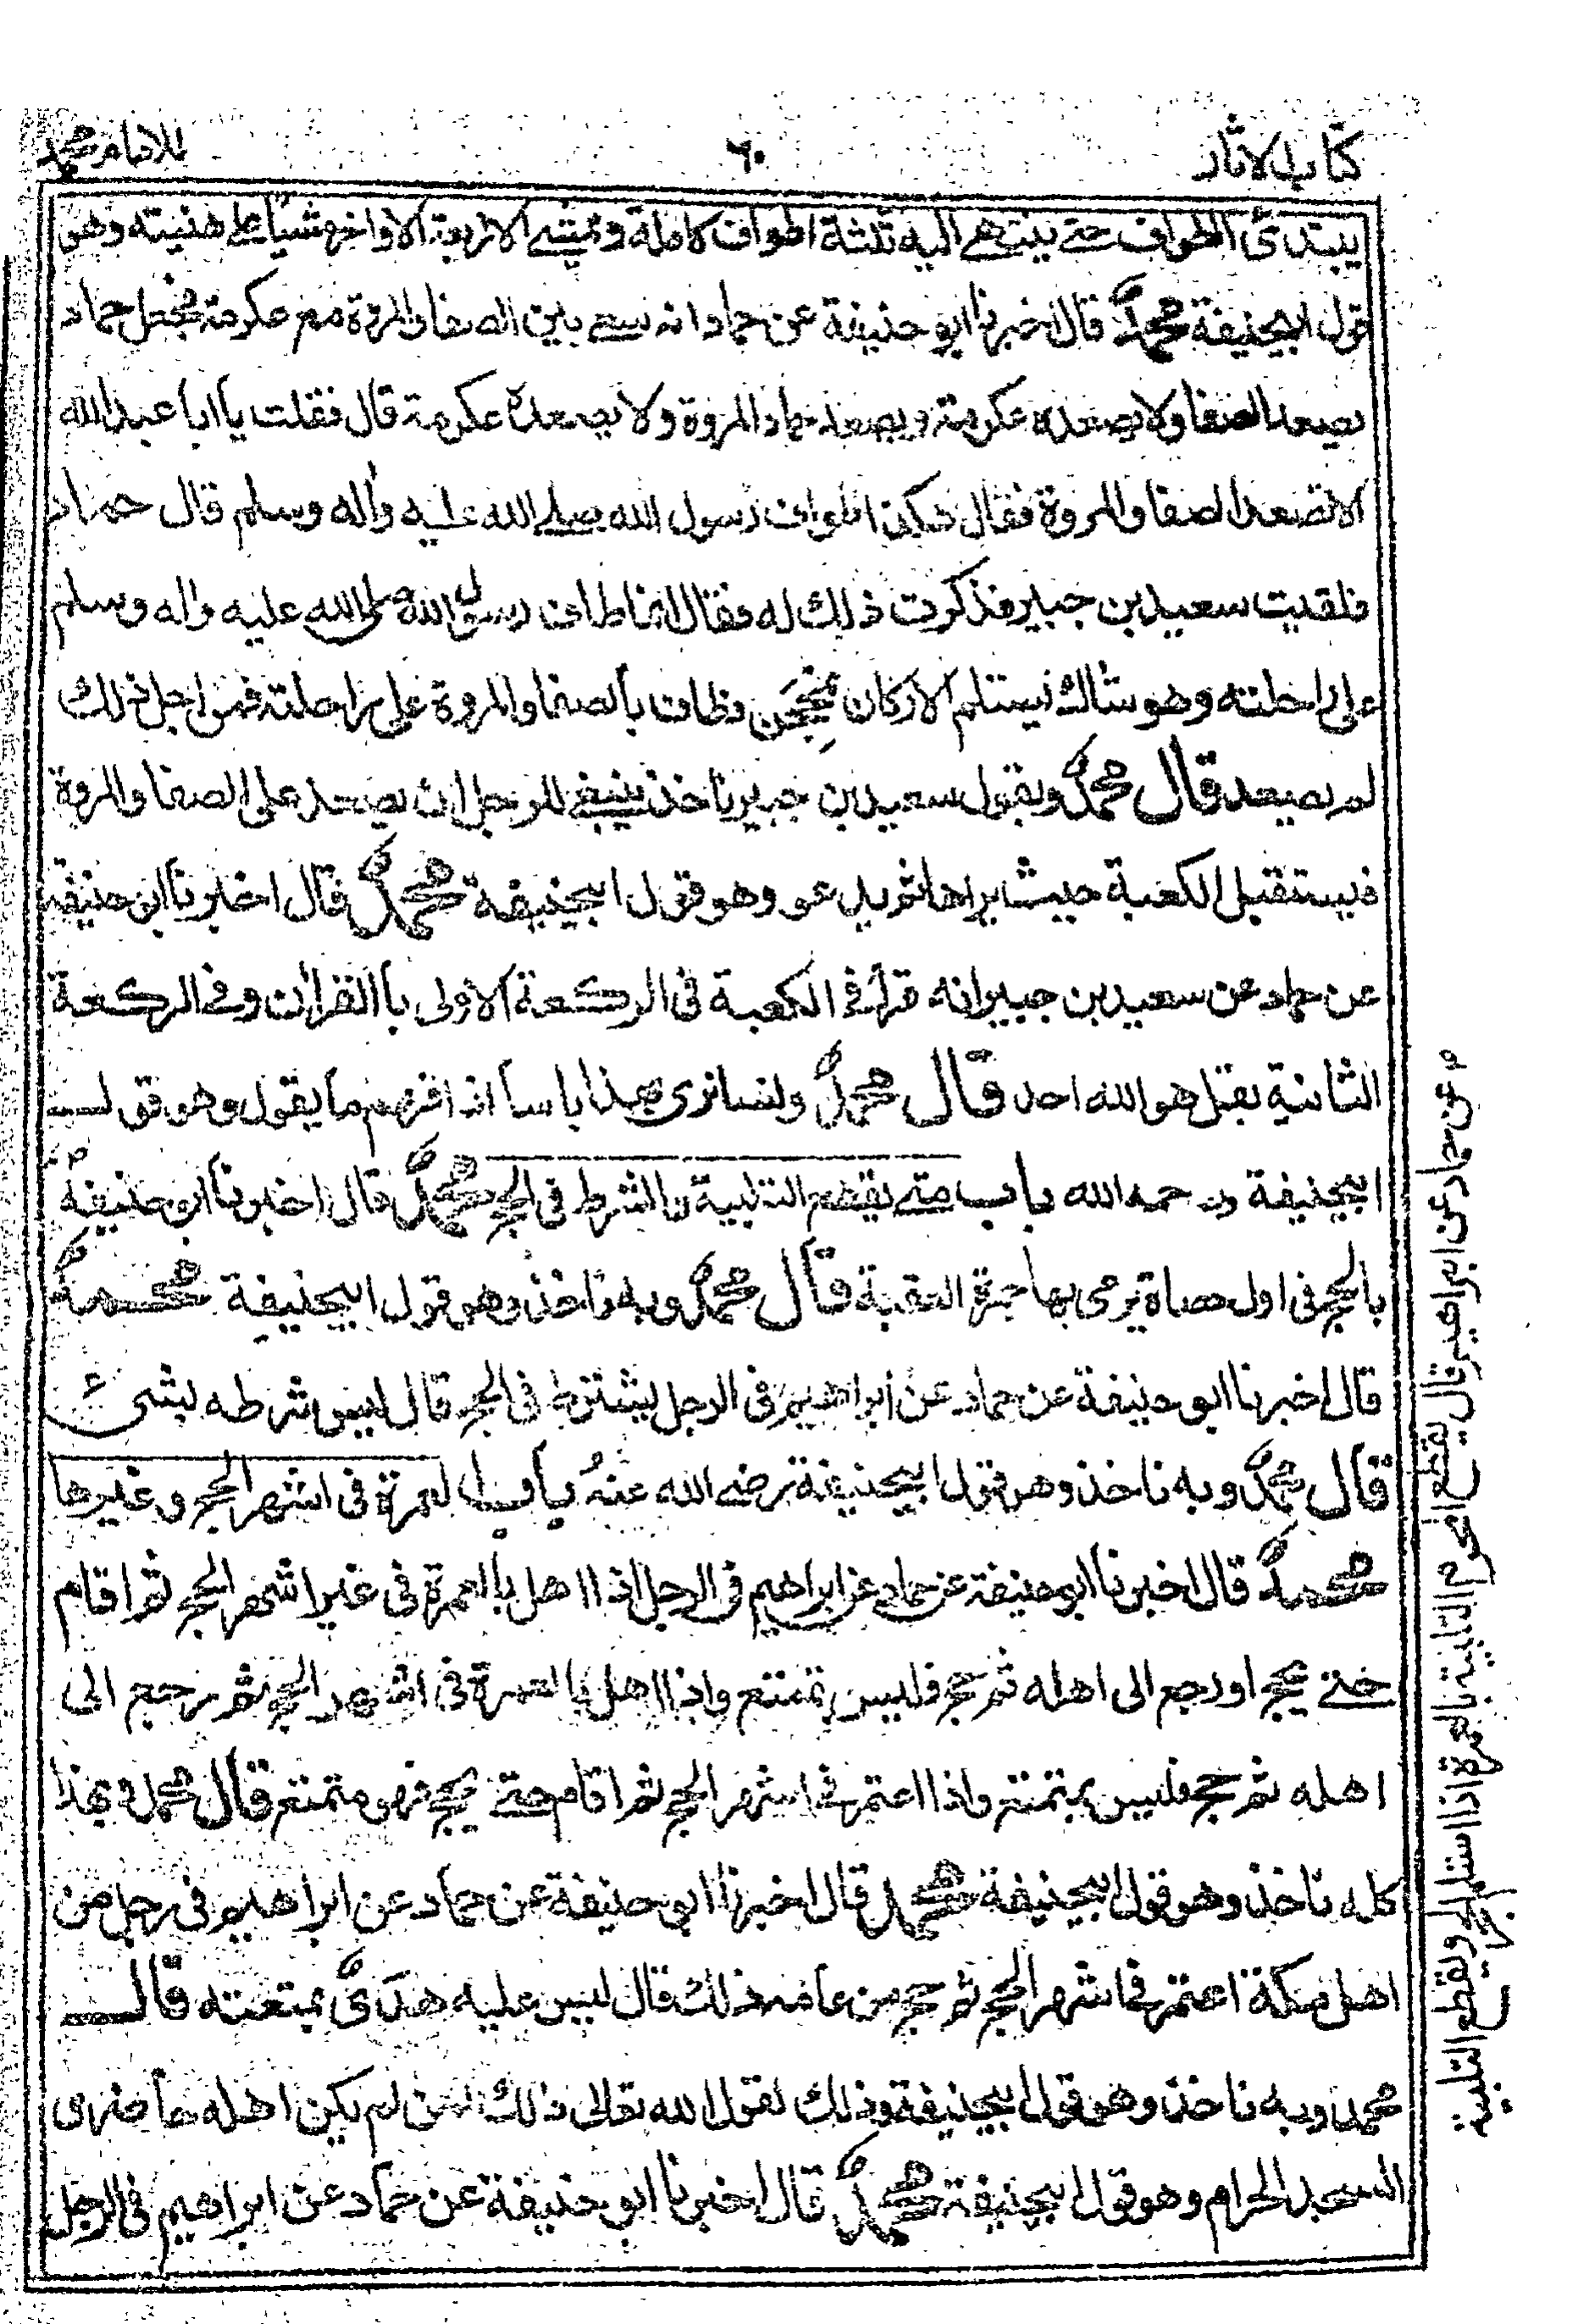 كتاب الاثار
٦٠
للامام محمد
يبتدئ الطواف حتى ينتهى اليه ثلثة اطواف كاملة ويمشى الاربعة الاواخر مشيا على هنيته وهو
قول ابيحنيفة محمد قال اخبرنا ابو حنيفة عن حماد انه سعى بين الصفا والمروة مع عكرمة فجعل حماد
يصعد الصفا ولا يصعده عكرمة ويصعد حماد المروة ولا يصعدة عكرمة قال فقلت يا ابا عبد الله
الا تصعد الصفا والمروة فقال هكذا طواف رسول الله صلى الله عليه واله وسلم قال حماد
فلقيت سعيد بن جبير فذكرت ذلك له فقال انما طاف رسول الله صلى الله عليه واله وسلم
على راحلته وهو شاك يستلم الاركان بمحجن وطاف بالصفا والمروة على راحلته فمن اجل ذلك
لم يصعد قال محمد وبقول سعيد بن جبير ناخذ ينبغى للرجل ان يصعد على الصفا والمروة
فيستقبل الكعبة حيث يراها ثم يدعو وهو قول ابيحنيفة محمد قال اخبرنا ابو حنيفة
عن حماد عن سعيد بن جبير انه قرأ فى الكعبة فى الركعة الاولى بالقران وفى الركعة
الثانية بقل هو الله احد قال محمد ولسنا نرى بهذا باسا اذا فهم ما يقول وهو قول
ابيحنيفة رحمه الله باب متى يقطع التلبية والشرط فى الحج محمد قال اخبرنا ابو حنيفة
بالحج فى اول حصاة يرمى بها جمرة العقبة قال محمد وبه ناخذ وهو قول ابيحنيفة محمد
قال اخبرنا ابو حنيفة عن حماد عن ابراهيم فى الرجل يشترط فى الحج قال ليس شرطه بشىء
قال محمد وبه ناخذ وهو قول ابيحنيفة رضى الله عنه باب العمرة فى اشهر الحج وغيرها
محمد قال اخبرنا ابو حنيفة عن حماد عن ابراهيم فى الرجل اذا اهل بالعمرة فى غير اشهر الحج ثم اقام
حتى يحج او رجع الى اهله ثم حج فليس بمتمتع واذا اهل بالعمرة فى اشهر الحج ثم رجع الى
اهله ثم حج فليس بمتمتع واذا اعتمر فى اشهر الحج ثم اقام حتى يحج فهو متمتع قال محمد وبهذا
كله ناخذ وهو قول ابيحنيفة محمد قال اخبرنا ابو حنيفة عن حماد عن ابراهيم فى رجل من
اهل مكة اعتمر فى اشهر الحج ثم حج من عامه ذلك قال ليس عليه هدى بمتعته قال
محمد وبه ناخذ وهو قول ابيحنيفة وذلك لقول الله تعالى ذلك لمن لم يكن اهله حاضرى
المسجد الحرام وهو قول ابيحنيفة محمد قال اخبرنا ابو حنيفة عن حماد عن ابراهيم فى الرجل
عن حماد عن ابراهيم قال يقطع المحرم التلبية بالعمرة اذا استلم الحجر ويقطع التلبية